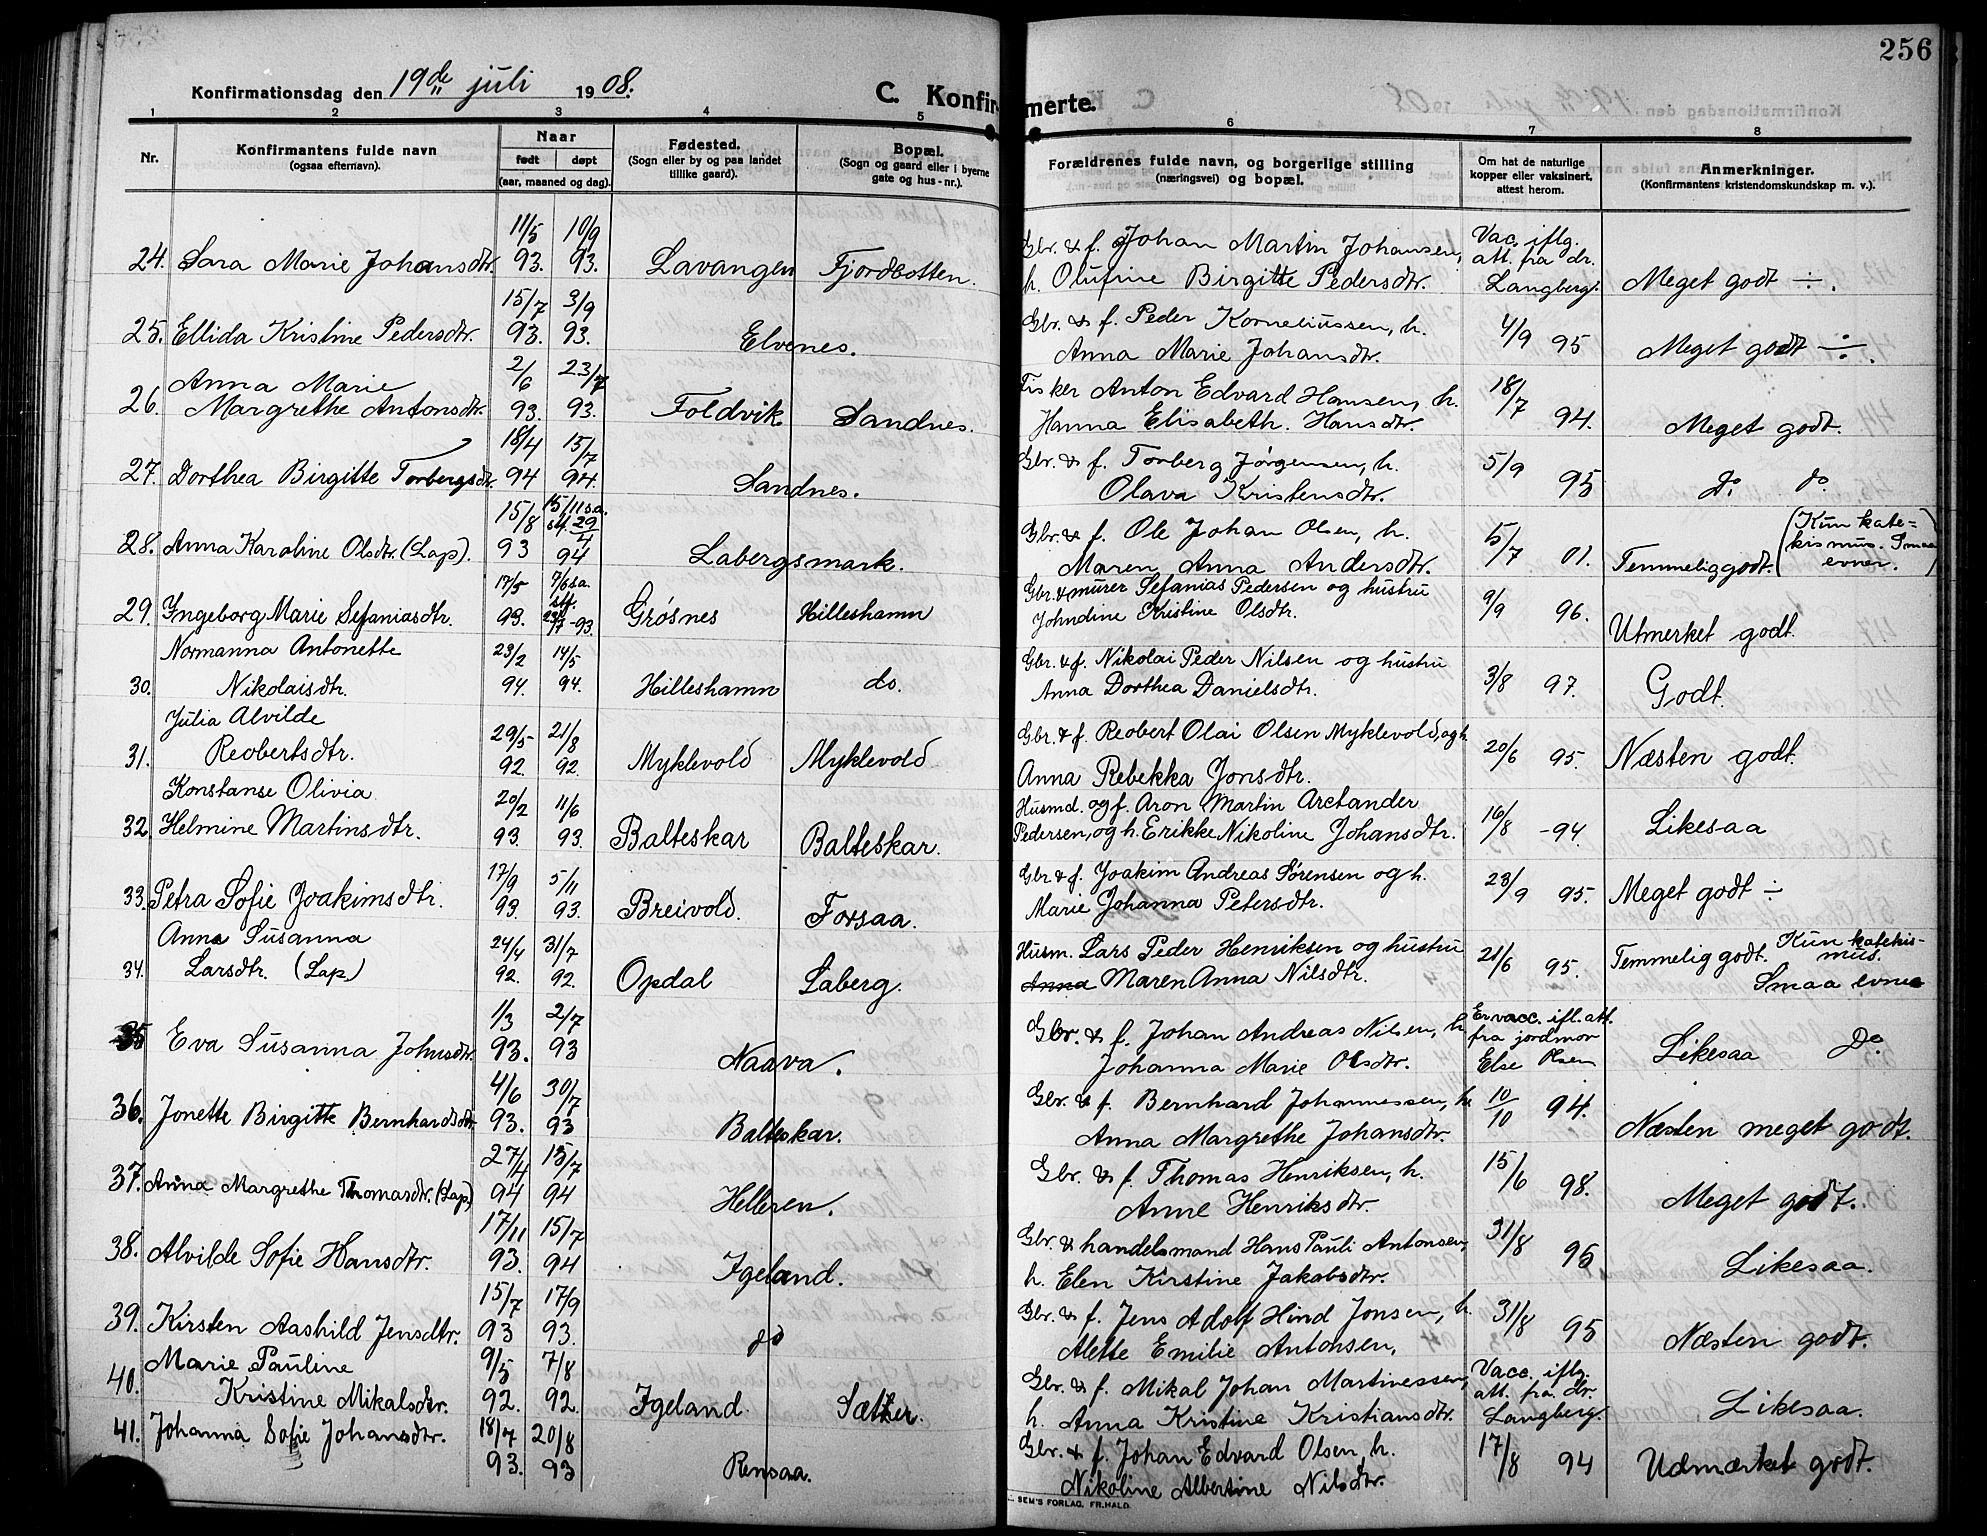 256
Konfirmationsdag den 19de juli 1908.
C. Konfirmerte.
1 2 3 4 5 6 7 8
Nr.
Konfirmantens fulde navn
(ogsaa efternavn).
Naar
født døpt
(aar, maaned og dag).
Fødested.
(Sogn eller by og paa landet
tillike gaard).
Bopæl.
(Sogn og gaard eller i byerne
gate og hus-nr.).
Forældrenes fulde navn, og borgerlige stilling
(næringsvei) og bopæl.
Om hat de naturlige
kopper eller vaksinert,
attest herom.
Anmerkninger.
(Konfirmantens kristendomskundskap m. v.).
11/5 10/9 Gbr. & f. Johan Martin Johansen, Vac. iflg.
att. fra dr.
24. Sara Marie Johansdtr. 93. 93. Lavangen Fjordbotten. h. Olufine Birgitte Pedersdtr. Langberg. Meget godt ÷.
15/7 3/9 Gbr. & f. Peder Korneliussen, h.
25. Ellida Kristine Pedersdtr. 93. 93. Elvenes. Anna Marie Johansdtr. 4/9 95 Meget godt ÷.
Anna Marie 2/6 23/7 Fisker Anton Edvard Hansen, h.
26. Margrethe Antonsdtr. 93. 93. Foldvik Sandnes. Hanna Elisabeth Hansdtr. 18/7 94. Meget godt.
18/4 15/7 Gbr. & f. Torberg Jørgensen, h.
27. Dorthea Birgitte Torbergsdtr. 94 94. Sandnes. Olava Kristensdtr. 5/9 95 do. do.
15/8 15/11 sa. st. 29/4 Gbr. & f. Ole Johan Olsen, h. (Kun kate-
kismus. Smaa
evner.)
28. Anna Karoline Olsdtr. (Lap). 93 94 Labergsmark. Maren Anna Andersdtr. 5/7 01. Temmelig godt.
17/5 7/6 sa. st. Gbr. & murer Sefanias Pedersen og hustru
29. Ingeborg Marie Sefaniasdtr. 93. 23/7 -93. Grøsnes Hilleshamn Johndine Kristine Olsdtr. 9/9 96. Utmerket godt.
Normanna Antonette 23/2 14/5 Gbr. & f. Nikolai Peder Nilsen og hustru
30. Nikolaisdtr. 94. 94. Hilleshamn do. Anna Dorthea Danielsdtr. 3/8 97. Godt.
Julia Alvilde
31. Reobertsdtr. 29/5 92. 21/8 92. Myklevold Myklevold Gbr. & f. Reobert Olai Olsen Myklevold, og h.
Anna Rebekka Jonsdtr. 20/6 95. Næsten godt.
Konstanse Olivia 20/2 11/6 Husmd. og f. Aron Martin Arctander
32. Helmine Martinsdtr. 93. 93. Balteskar Balteskar. Pedersen, og h. Erikke Nikoline Johansdtr. 16/8 -94. Likesaa
17/9 5/11 Gbr & f. Joakim Andreas Sørensen og h.
33. Petra Sofie Joakimsdtr. 93. 93. Breivold. Forsaa. Marie Johanna Petersdtr. 23/9 95. Meget godt ÷
Anna Susanna 24/4 31/7 Husm. Lars Peder Henriksen og hustru
34. Larsdtr. (Lap) 92. 92. Opdal Laberg. Anna Maren Anna Nilsdtr. 21/6 95. Temmelig godt. Kun katekis-
mus.
Smaa evne
1/3 2/7 Gbr. & f. Johan Andreas Nilsen, h. Er vacc. ifl. att.
fra jordmor
35 Eva Susanna Johnsdtr. 93. 93 Naava. Johanna Marie Olsdtr. Else Olsen Likesaa Do.
4/6 30/7 Gbr. & f. Bernhard Johannessen, h.
36. Jonette Birgitte Bernhardsdtr. 93. 93 Balteskar. Anna Margrethe Johansdtr. 10/10 94. Næsten meget godt.
27/4 15/7 Gbr. & f. Thomas Henriksen, h.
37. Anna Margrethe Thomasdtr. (Lap) 94 94 Helleren. Anne Henriksdtr. 15/6 98. Meget godt.
17/11 15/7 Gbr. & handelsmand Hans Pauli Antonsen,
38. Alvilde Sofie Hansdtr. 93. 94 Igeland. h. Elen Kirstine Jakobsdtr. 31/8 95. Likesaa.
15/7 17/9 Gbr. & f. Jens Adolf Hind Jonsen, h.
39. Kirsten Aashild Jensdtr. 93 93. do Alette Emilie Antonsen. 31/8 95 Næsten godt.
Marie Pauline 9/5 7/8 Gbr. & f. Mikal Johan Martinessen, Vacc. iflg.
att. fra dr.
40. Kristine Mikalsdtr. 92. 92. Igeland. Sætter. h. Anna Kristine Kristiansdtr. Langberg. Likesaa.
41. Johanna Sofie Johansdtr. 18/7 20/8 Gbr. & f. Johan Edvard Olsen, h.
93. 93 Rensaa. Nikoline Albertine Nilsdtr. 17/8 94 Udmærket godt.
SEM'S FORLAG, FR.HALD.